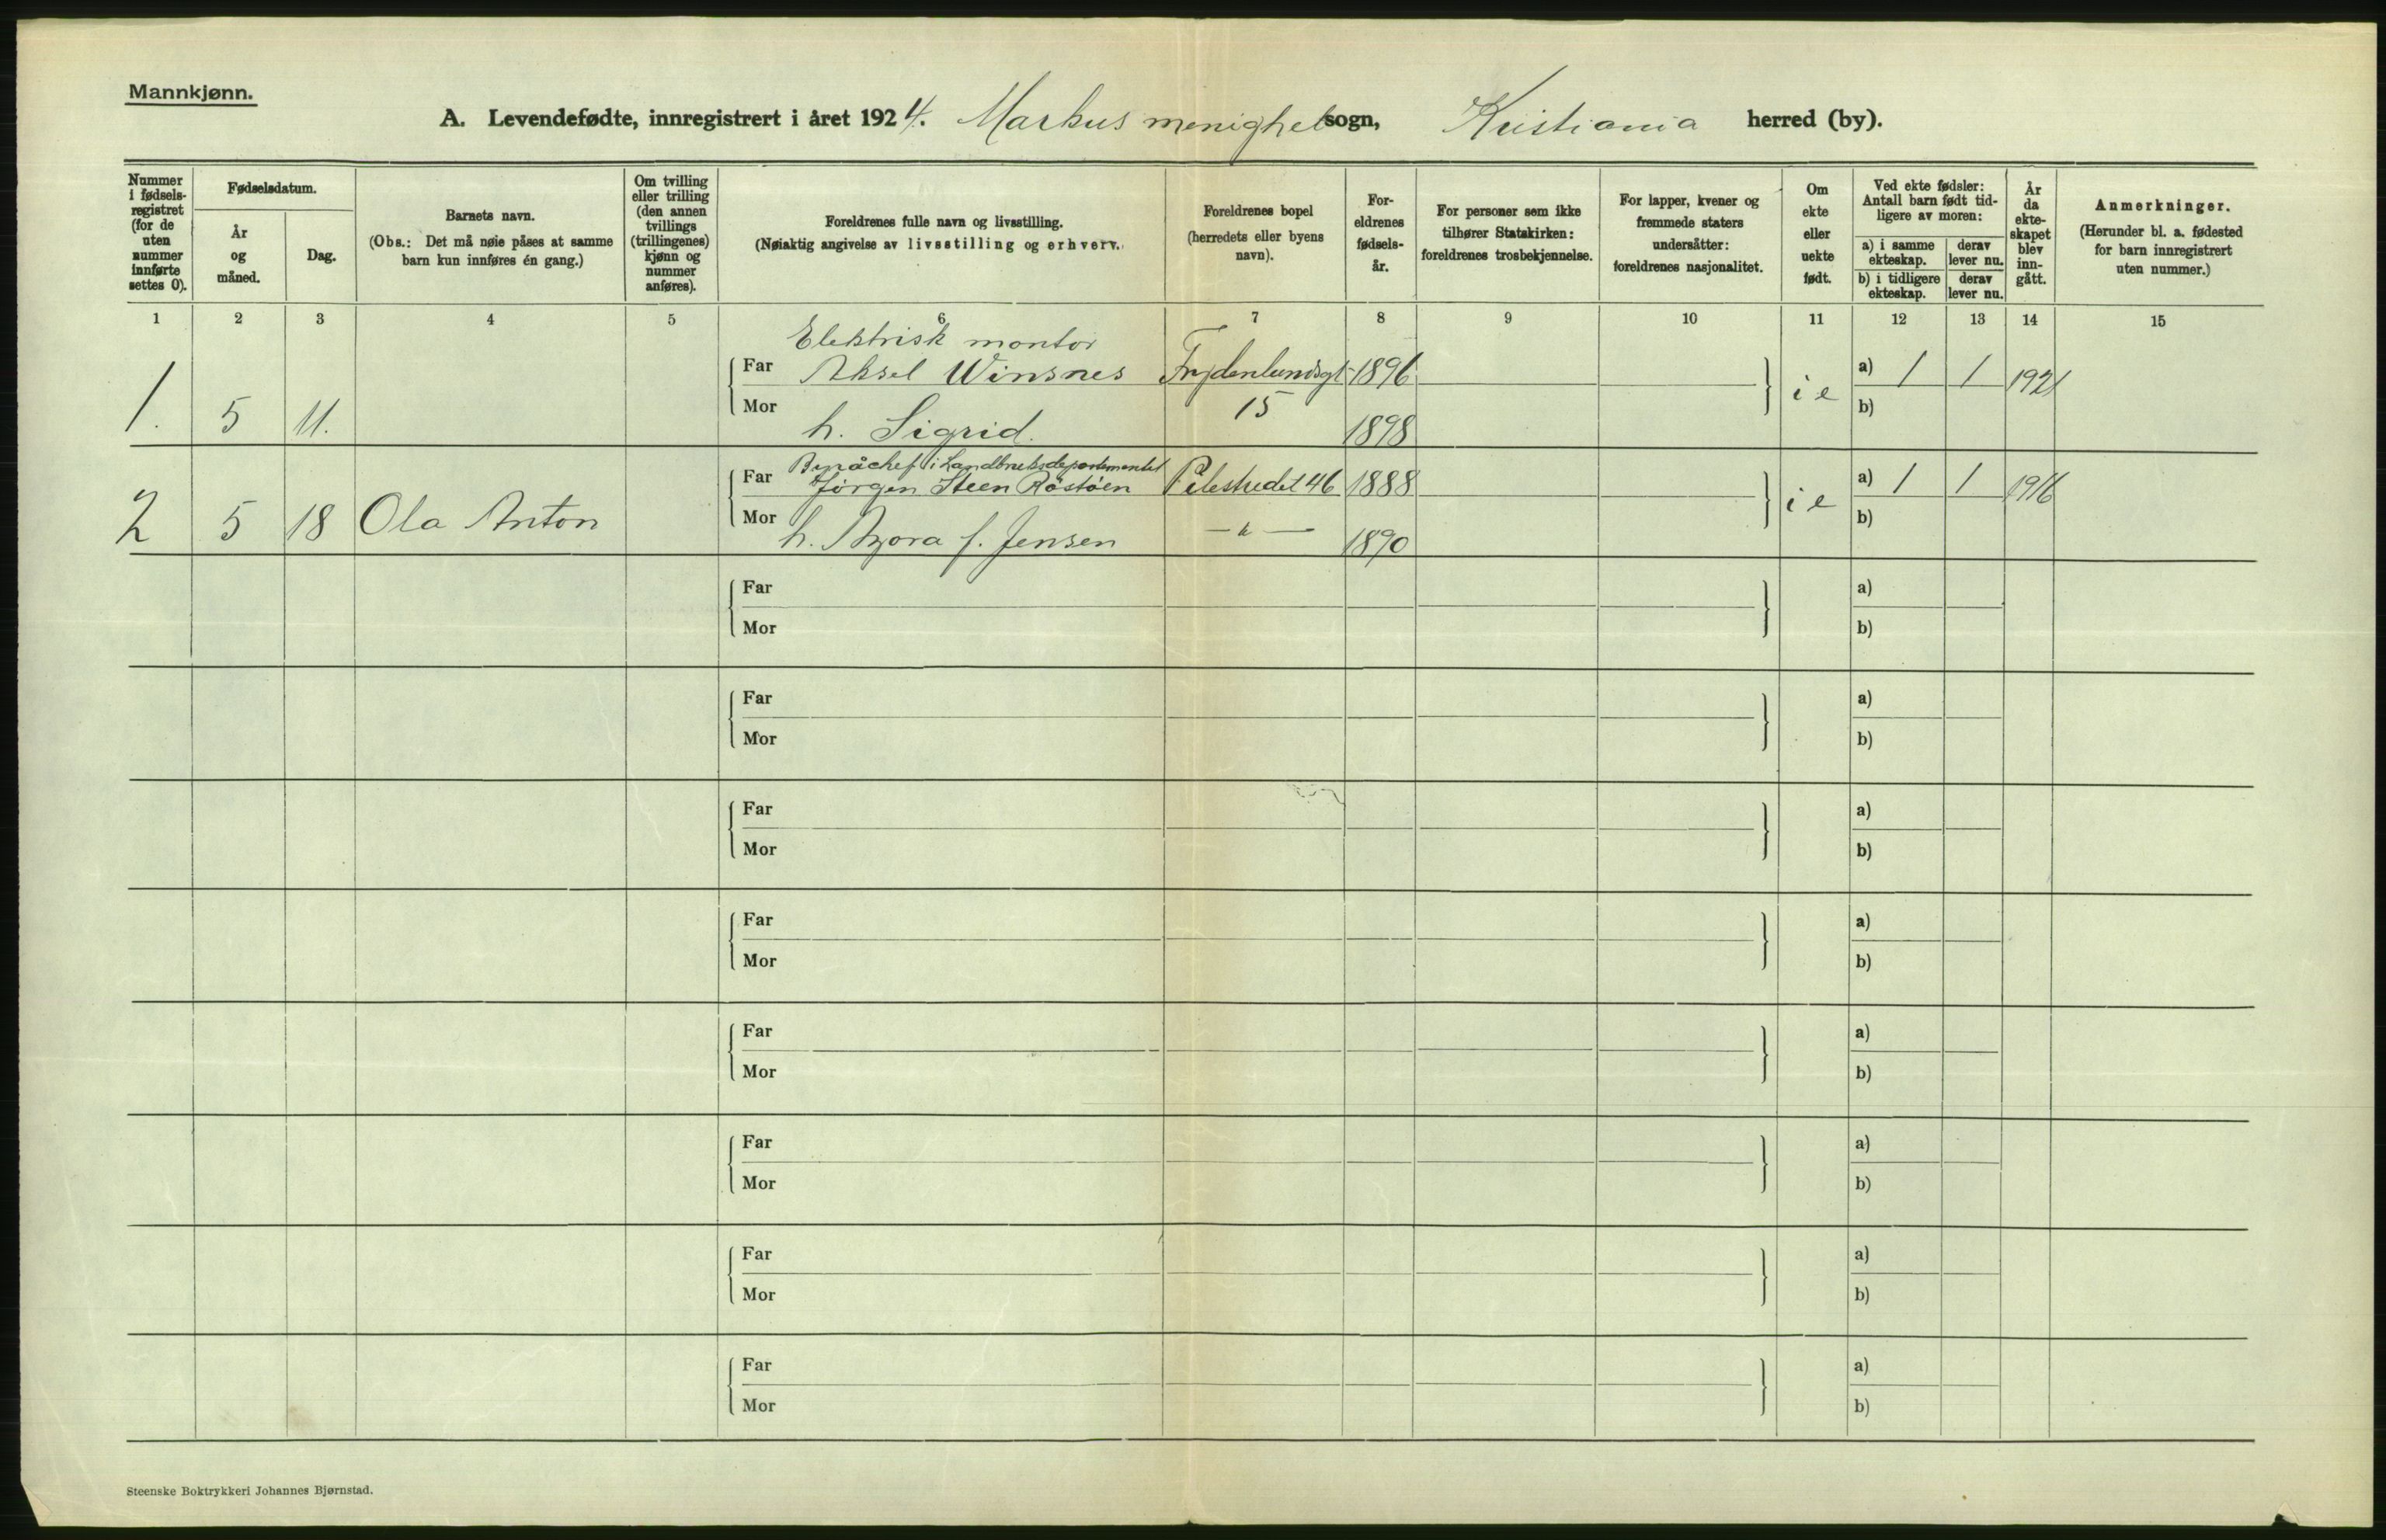 Mannkjønn.
A. Levendefødte, innregistrert i året 1924. Markus menighet sogn, Kristiania herred (by).
Nummer i fødsels-registret (for de uten nummer innførte settes 0).
Fødselsdatum.
År og måned.
Dag.
Barnets navn.
(Obs.: Det må nøie påses at samme barn kun innføres én gang.)
Om tvilling eller trilling (den annen tvillings (trillingenes) kjønn og nummer anføres).
Foreldrenes fulle navn og livsstilling.
(Nøiaktig angivelse av livsstilling og erhverv.)
Foreldrenes bopel (herredets eller byens navn).
For-eldrenes fødsels-år.
For personer som ikke tilhører Statskirken: foreldrenes trosbekjennelse.
For lapper, kvener og fremmede staters undersåtter: foreldrenes nasjonalitet.
Om ekte eller uekte født.
Ved ekte fødsler: Antall barn født tid-ligere av moren:
a) i samme ekteskap.
derav lever nu.
b) i tidligere ekteskap.
derav lever nu.
År da ekte-skapet blev inn-gått.
Anmerkninger.
(Herunder bl. a. fødested for barn innregistrert uten nummer.)
1 2 3 4 5 6 7 8 9 10 11 12 13 14 15
Elektrisk montør
Far Aksel Winsnes Frydenlundsgt 1896 a) 1 1 1921
1. 5 11. Mor h. Sigrid. 15 1898 i e b)
Byråchef i Landbruksdepartementet
Far Jörgen Steen Röstöen Pilestredet 46 1888 a) 1 1 1916
2 5 18 Ola Anton Mor h. Thora f. Jensen — " — 1890 i e b)
Far a)
Mor b)
Far a)
Mor b)
Far a)
Mor b)
Far a)
Mor b)
Far a)
Mor b)
Far a)
Mor b)
Far a)
Mor b)
Far a)
Mor b)
Steenske Boktrykkeri Johannes Bjørnstad.